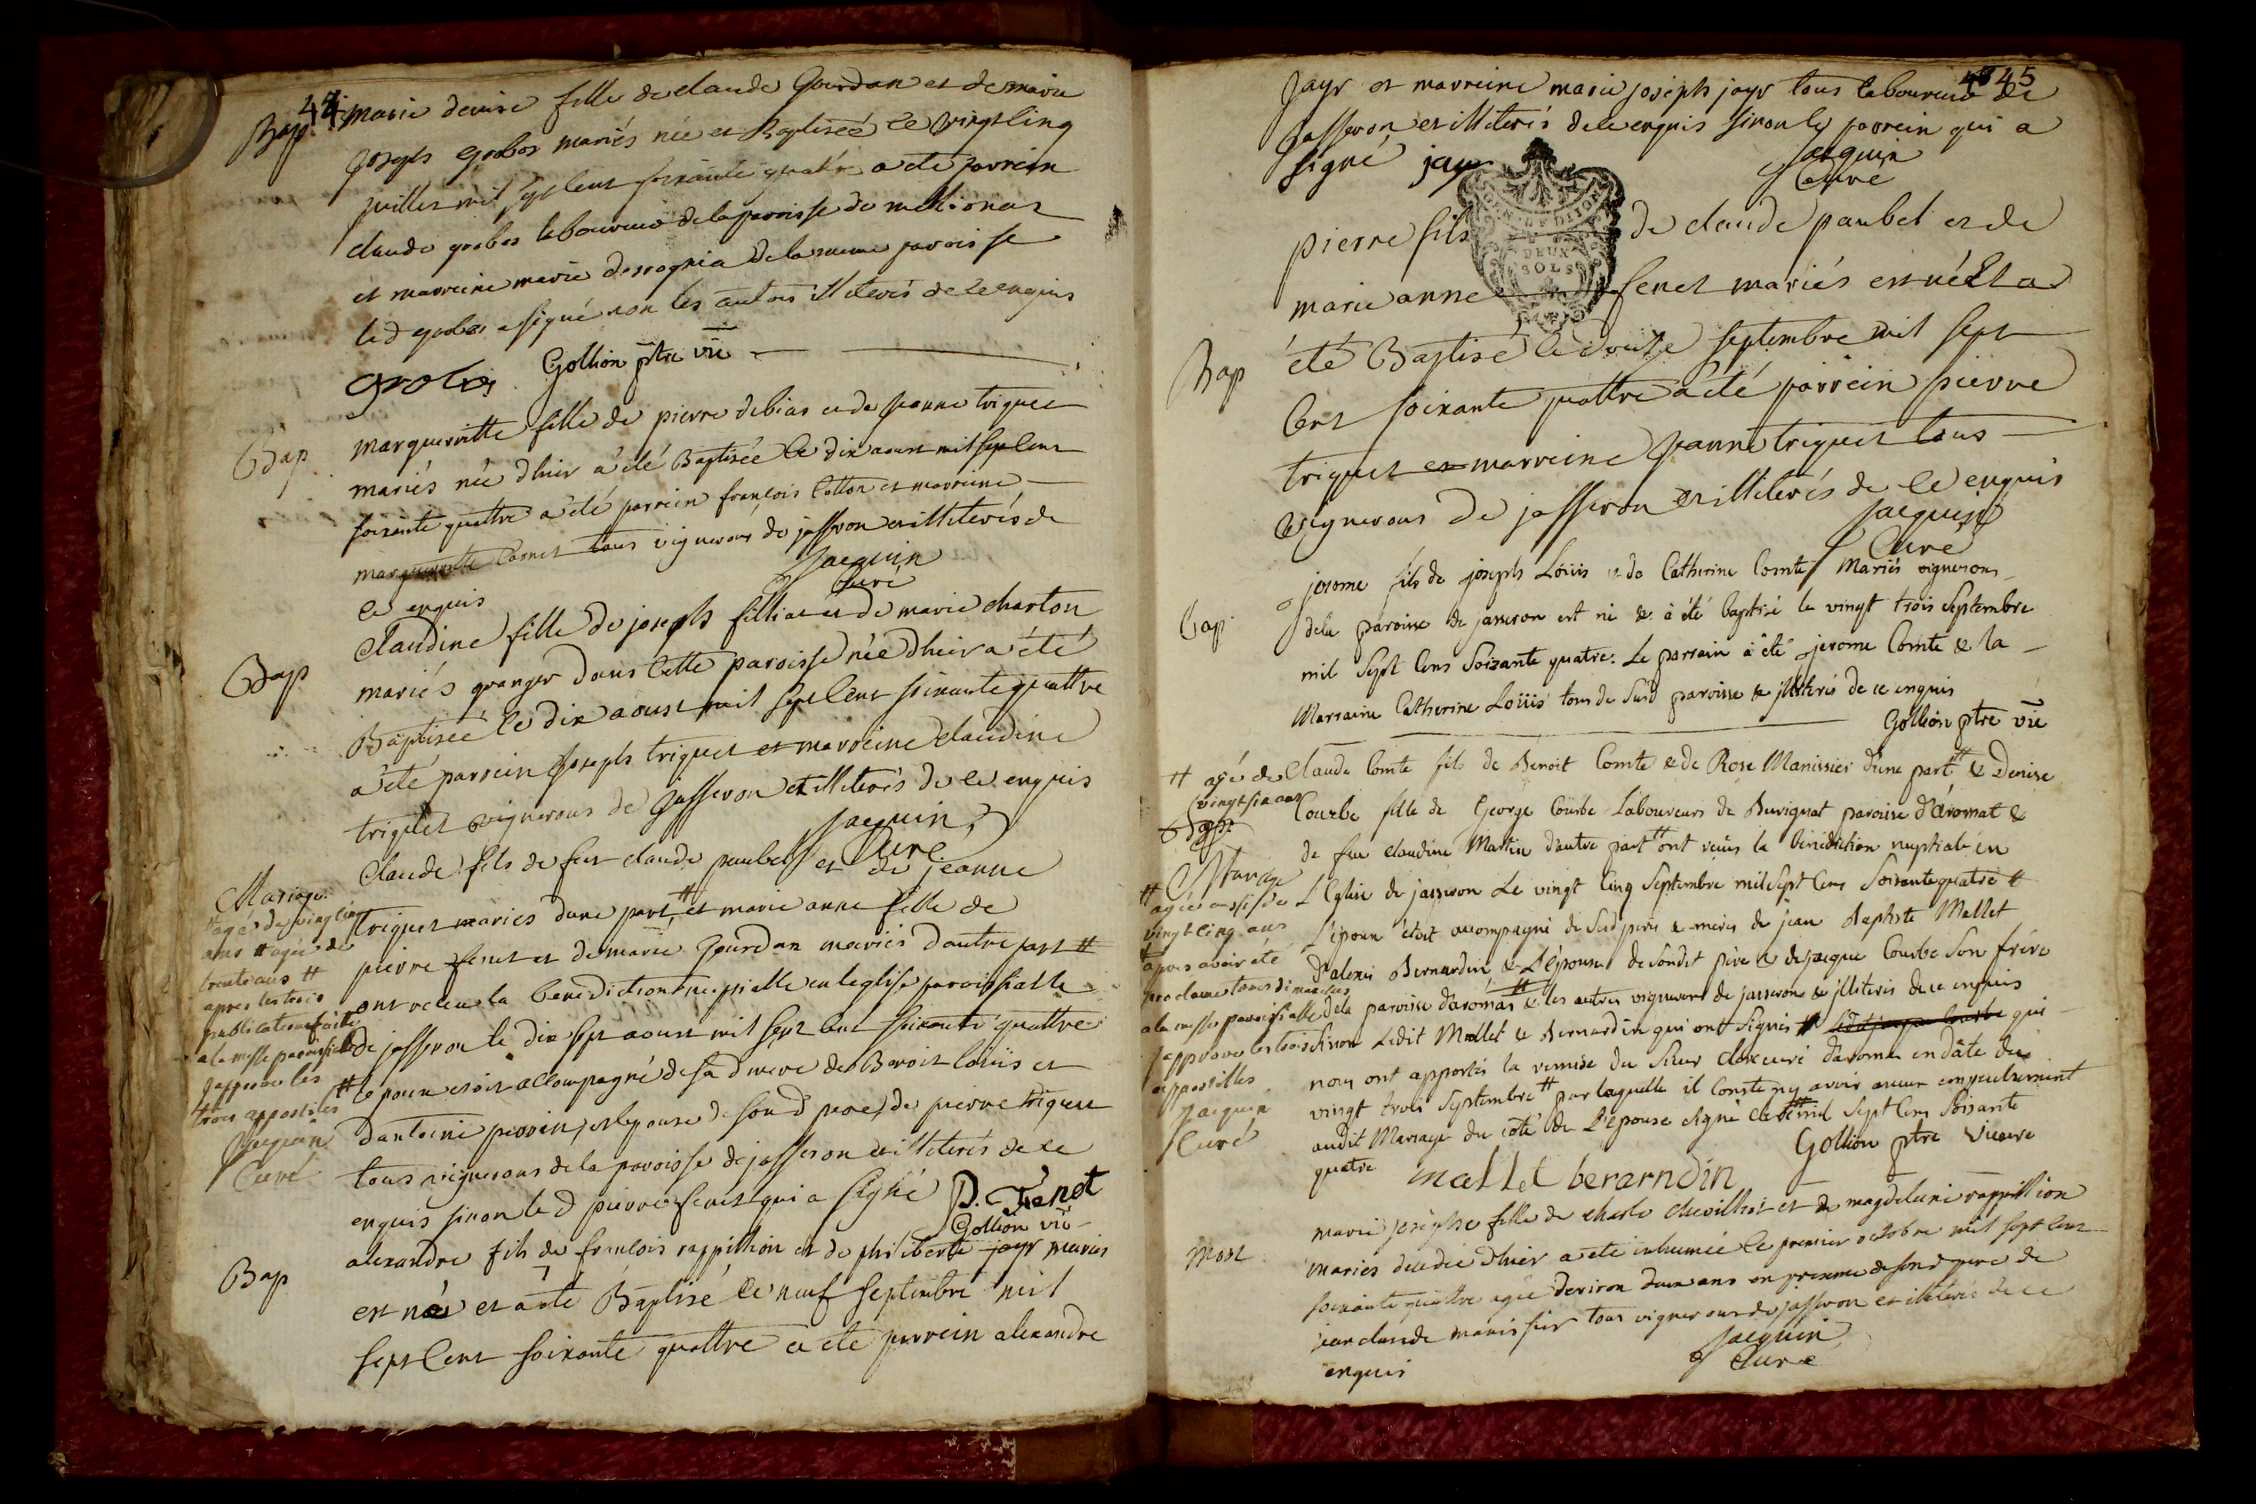 44
Bap marie denise fille de claude Gourdan et de marie
joseph grobos mariés née et Baptisée le vingt cinq
juillet mil sept cent soixante quatre a été parrein
claude grobos laboureur de la paroisse de
et marreine marie de la meme paroisse
led grobos a signé non les autres illiterés de ce enquis
grobos Gollion ptre vic
Bap marguerittte fille de pierre debias et de jeanne triquet
mariés née d'hier a été Baptisée le dix aoust mil sept cent
soixante quattre a été parrein françois Cotton et marreine
margueritte Cornet tous vignerons de jasseron et illiterés de
ce enquis Jacquin
Curé
Bap Claudine fille de joseph filliat et de marie charton
mariés granger dans cette paroisse née d'hier a été
Baptisée le dix aoust mil sept cent soixante quattre
a été parrein joseph triquet et marreine claudine
triquet vignerons de jasseron et illiterés de ce enquis
Jacquin
Curé
Mariage Claude fils de feu claude paubel et de jeanne
triquet mariés d'une part # et marie anne fille de
pierre fenet et de marie Gourdan mariés d'autre part #
ont receu la benediction nuptialle en l'eglise paroissialle
de jasseron le dix sept aoust mil sept cent soixante quattre
# l'epoux etoit accompagné de sa d mere de Benoit louis et
d'antoine perrin, et l'epouse de son d pere, de pierre triquet
tous vignerons de la paroisse de jasseron et illiterés de ce
enquis sinon le d pierre fenet qui a signé P. Fenet
Gollion vic
# agé de vingt cinq
ans # agée de
trente ans #
apres les trois
publications faites
a la messe paroissiale
j'approuve les
trois appostiles
Jacquin
Curé
Bap alexandre fils de francois rappillion et de philiberte jayr mariés
est né et a été Baptisé le neuf septembre mil
sept cent soixante quattre a été parrein alexandre
45
jayr et marreine marie joseph jayr tous laboureurs de
Jasseron et illiterés de ce enquis sinon le parrein qui a
signé jayr Jacquin
Curé
GEN. DEUX SOLS
Bap pierre fils de claude paubel et de
marie anne fenet mariés est né et a
été Baptisé le douze septembre mil sept
cent soixante quattre a été parrein pierre
triquet et marreine jeanne triquet tous
vignerons de jasseron et illiterés de ce enquis
Jacquin
Curé
Bap jerome fils de joseph Loüis & de Catherine Comte Mariés vignerons
de la paroisse de jasseron est né & a été baptisé le vingt trois Septembre
mil Sept Cens Soixante quatre. Le parrain a été jerome Comte & la
Marraine Catherine Loüis tous de Sud paroisse & illiterés de ce enquis
Gollion ptre vic
Claude Comte fils de Benoit Comte & de Rose Manissier d'une part # & Denise
Courbe fille de George Courbe Laboureurs de Buvignat paroisse d'aromat &
de feu claudine Martin d'autre part # ont reçus la bénédiction nuptiale en
L'Eglise de jasseron Le vingt Cinq Septembre mil Sept Cens Soixante quatre #
L'époux étoit accompagné de Sesd pere & mere de jean Baptiste Mallet
d'alexis Bernardin & L'épouse de Sondit pére & de jacque Courbe Son frére
de la paroisse d'aromas & les autres vignerons de jasseron & illiterés de ce enquis
Sinon Ledit Mallet & Bernardin qui ont Signés # qui
nous ont apportés la remise du Sieur Clerc curé d'aromas en dâte du
vingt trois Septembre # par laquelle il Conste n'y avoir aucun empechement
audit Mariage du coté de L'épouse Signé Clerc # mil Sept Cens Soixante
quatre mallet berarndin Gollion ptre Vicaire
# agé de
vingt six ans
Bap
Mariage
# agée aussi de
vingt cinq ans
# apres avoir été
proclamés trois dimanches
a la messe paroissialle
j'approuve les trois
appostilles
Jacquin
Curé
Mort marie josephe fille de charle chevillot et de magdeleine rappillion
mariés decedée d'hier a été inhumée le premier octobre mil sept cent
soixante quattre agée d'environ deux ans en presence de son d pere de
jean claude manissier tous vignerons de jasseron et illiterés de ce
enquis Jacquin
Curé